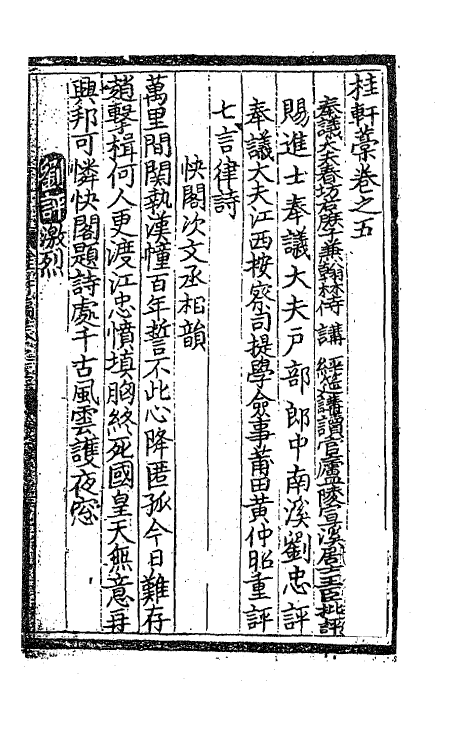 桂軒藁卷之五
奉議大夫春坊右庶子兼翰林侍講經筵講讀官廬陵宣溪居士王臣批評
賜進士奉議大夫戶部郎中南溪劉忠評
奉議大夫江西按察司提學僉事莆田黃仲昭重評
七言律詩
快閣次文丞相韻
萬里間関執漢幢百年誓不此心降匿孤今日難存
趙擊楫何人更渡江忠憤填胸終死國皇天無意再
興邦可憐快閣題詩處千古風雲護夜窓
劉評激烈